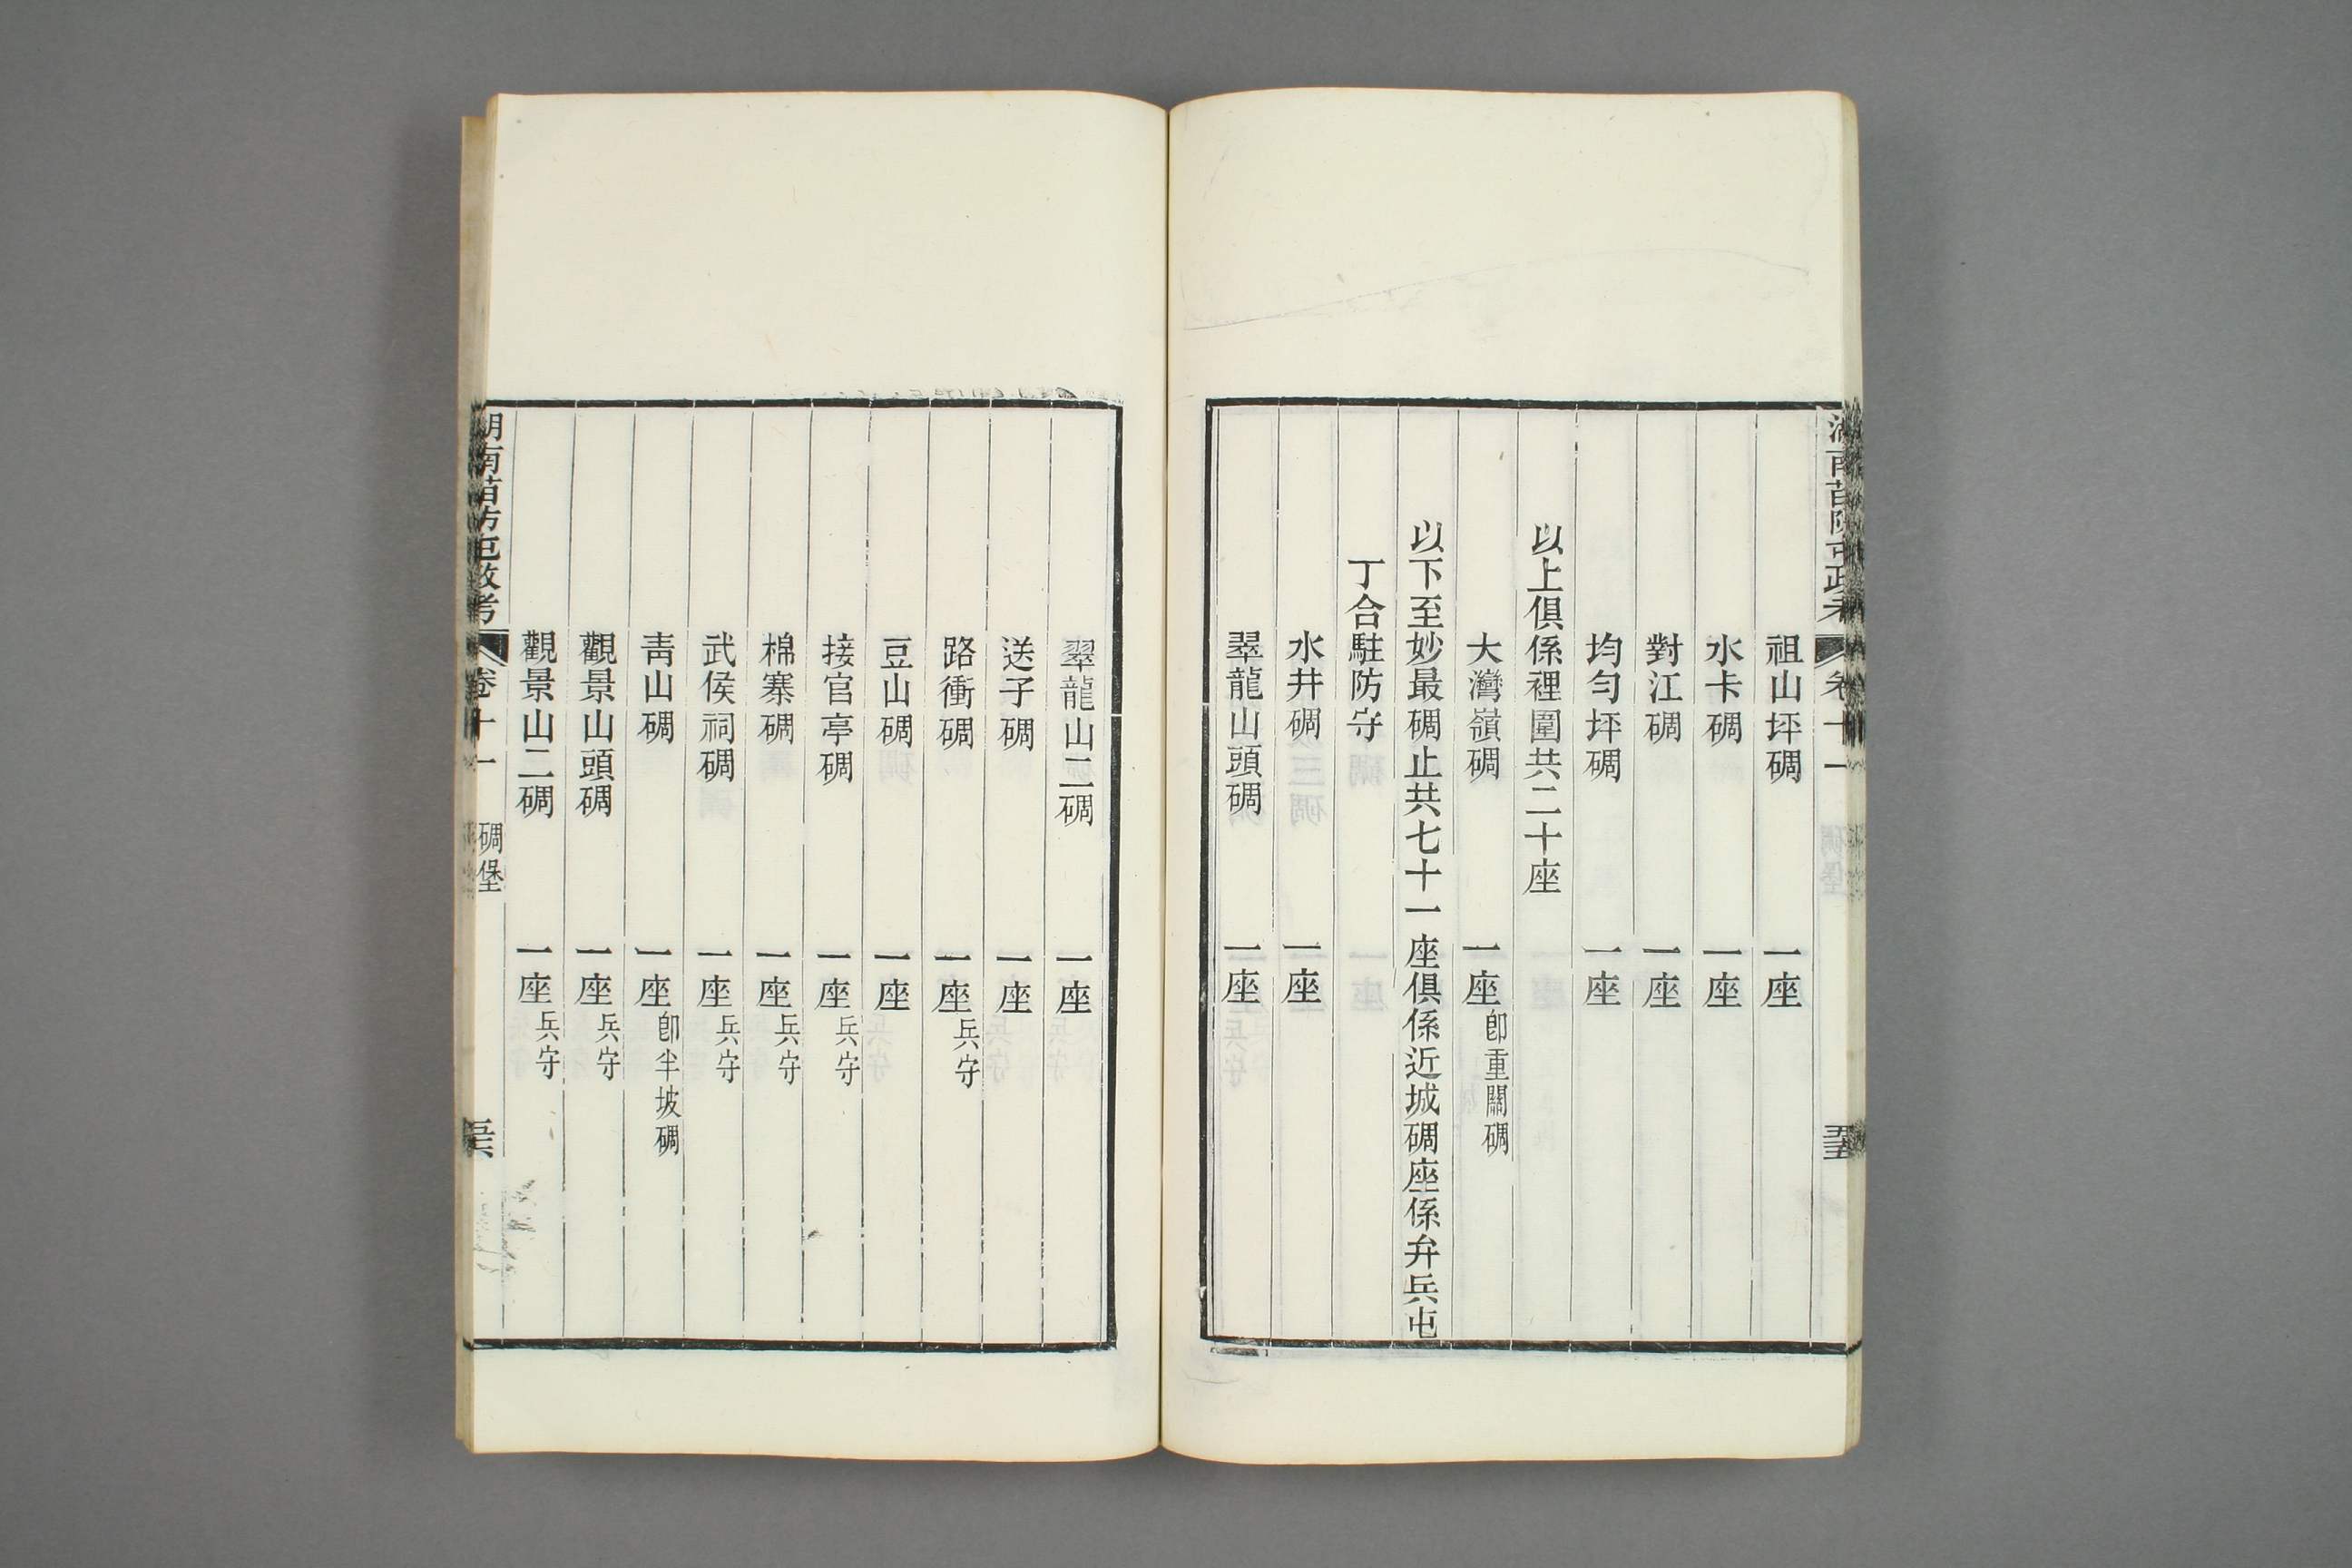 湖南苗防屯政考 卷十一
祖山坪碉 一座
水卡碉 一座
對江碉 一座
均勻坪碉 一座
以上俱係裡圍共二十座
大灣嶺碉 一座 卽重關碉
以下至妙最碉止共七十一座俱係近城碉座係弁兵屯
丁合駐防守
水井碉 一座
翠龍山頭碉 一座
翠龍山二碉 一座
送子碉 一座
路衝碉 一座 兵守
豆山碉 一座
接官亭碉 一座 兵守
棉寨碉 一座 兵守
武侯祠碉 一座 兵守
靑山碉 一座 卽半坡碉
觀景山頭碉 一座 兵守
觀景山二碉 一座 兵守
湖南苗防屯政考 卷十一 碉堡